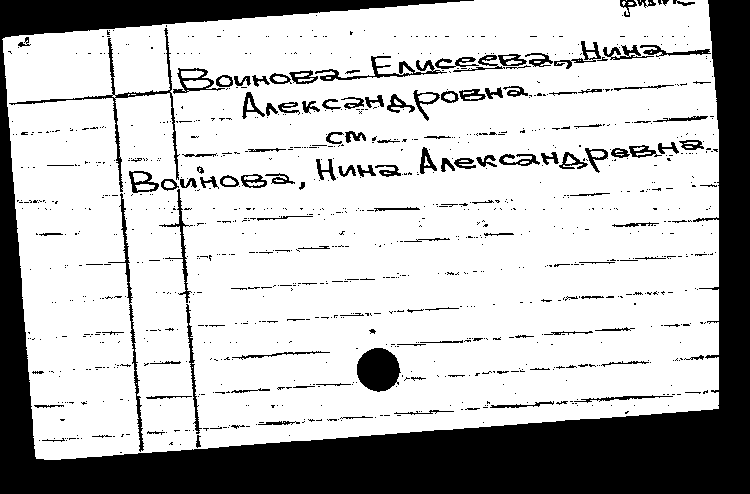 Воинова-Елисеева, Нина
Александровна
см.
Воинова, Нина Александровна